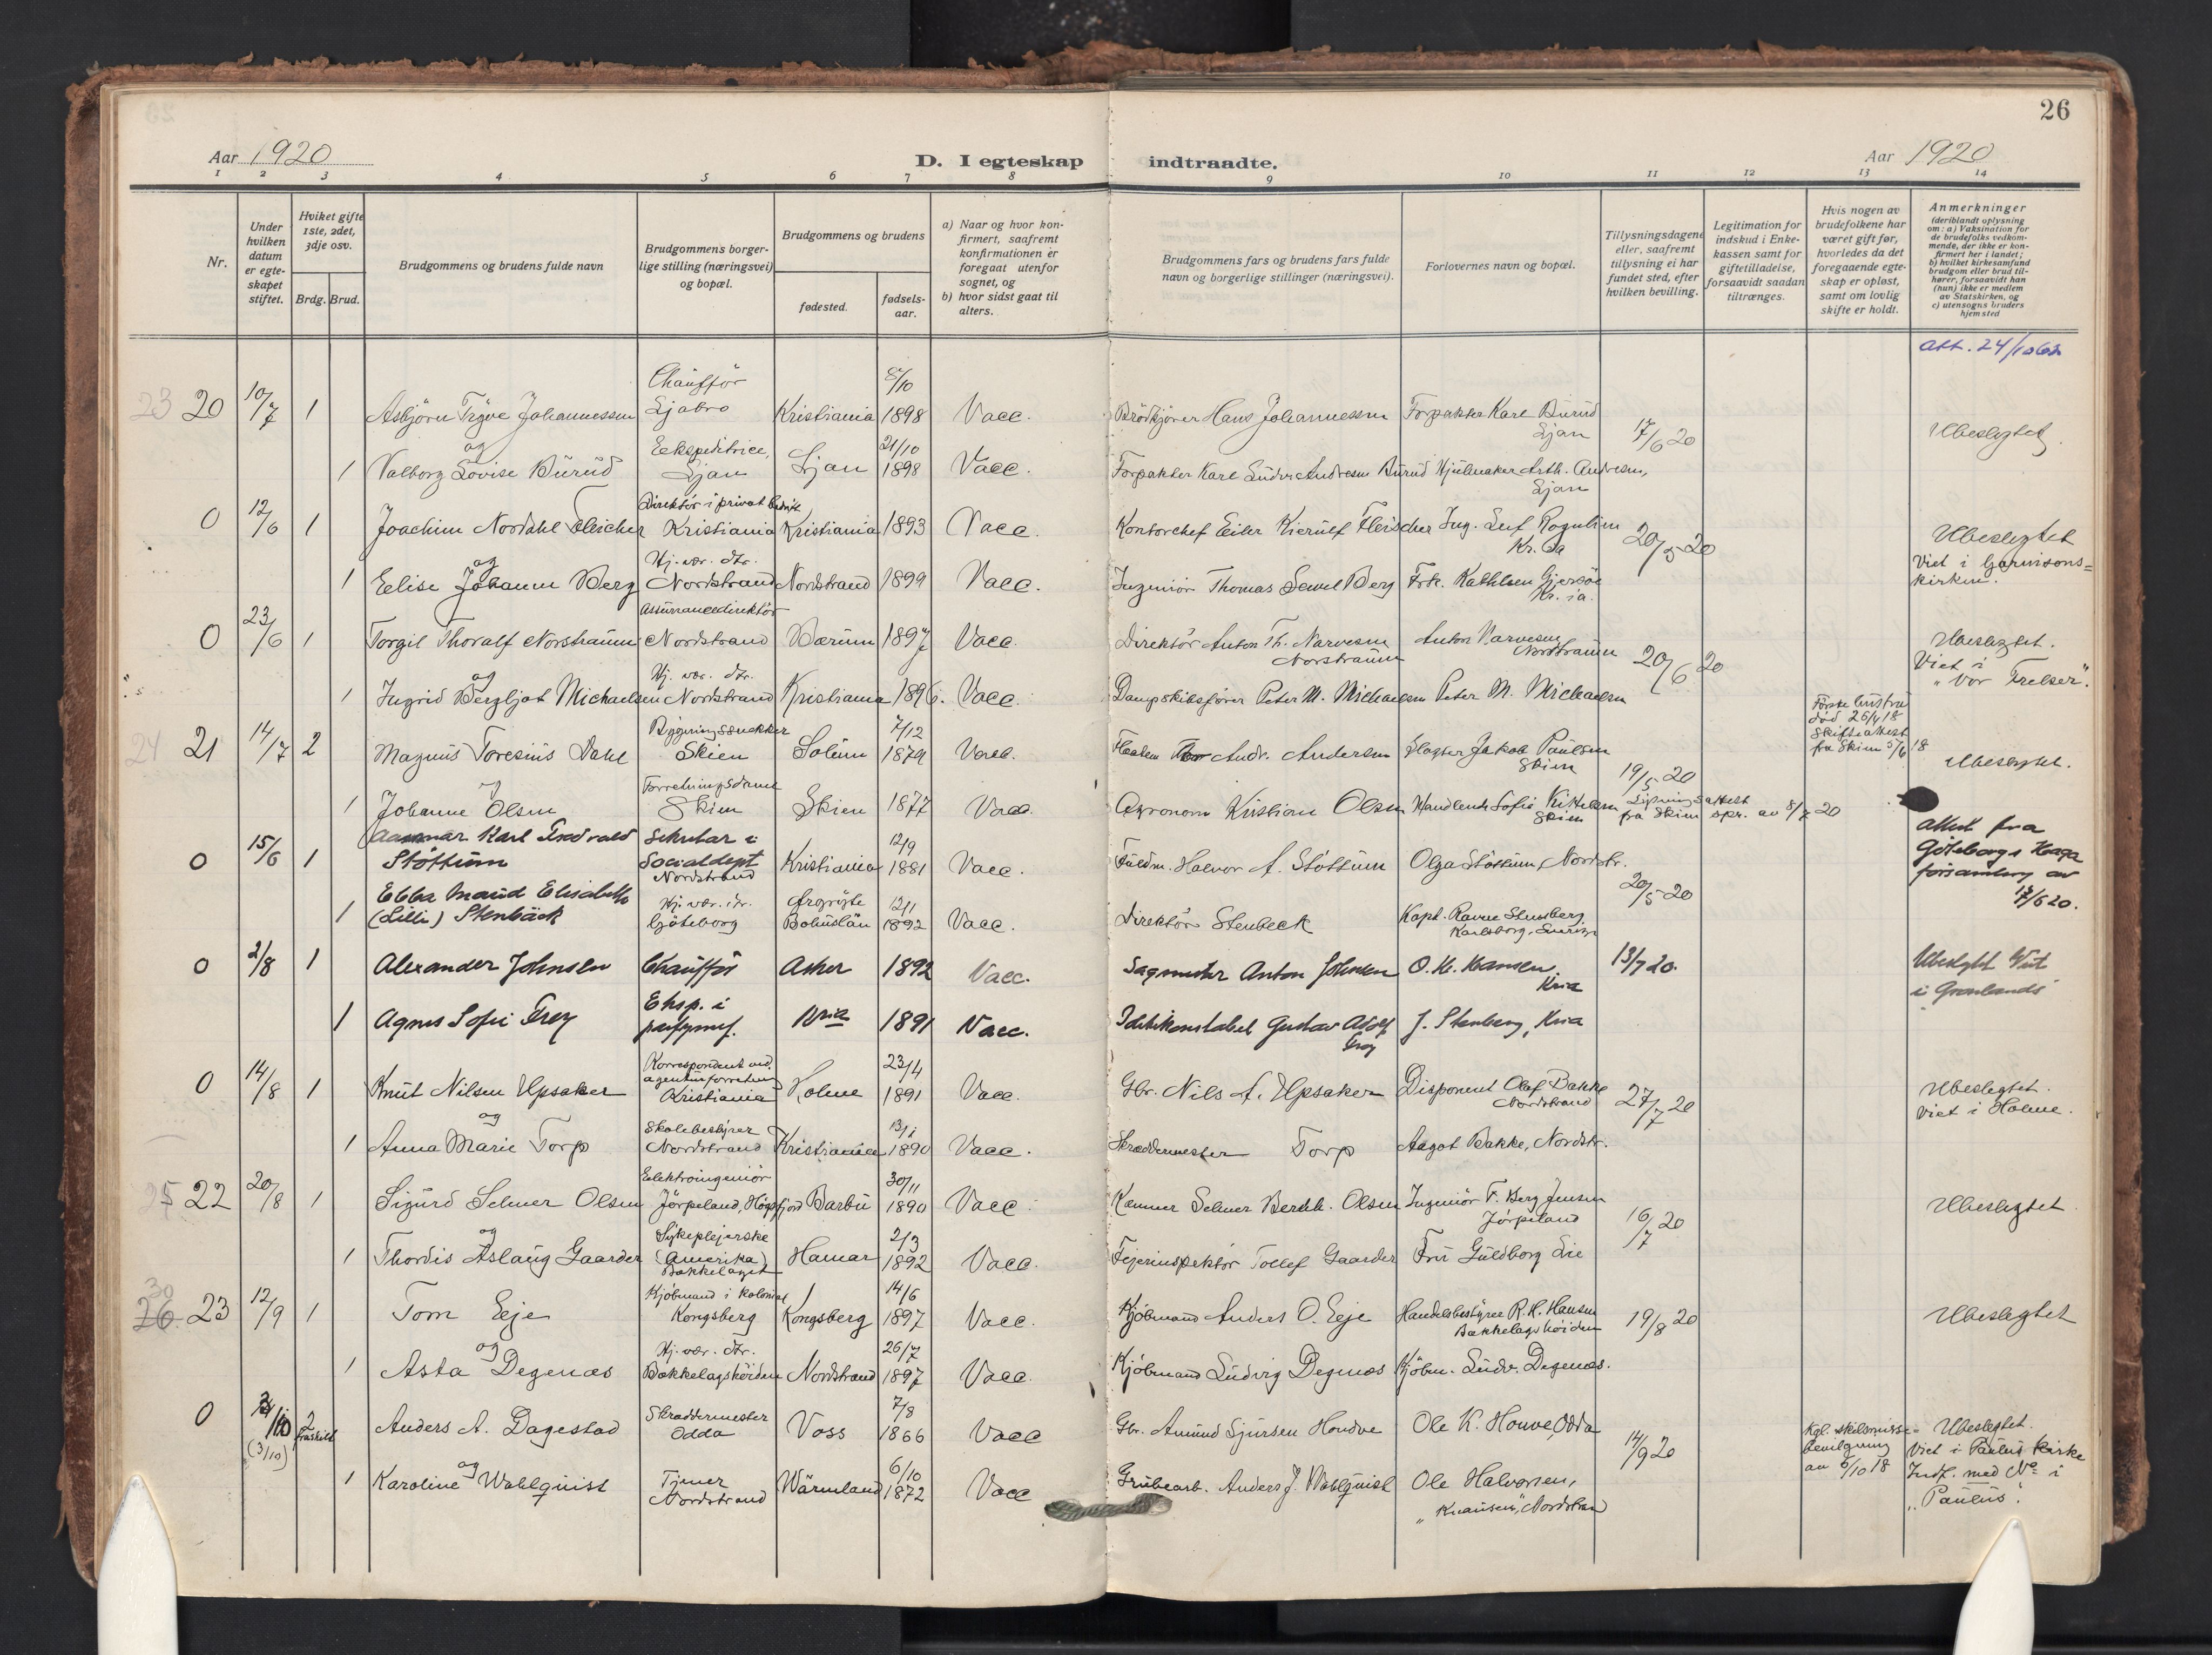 26
Aar 1920
D. I egteskap indtraadte.
Aar 1920
1 2 3 4 5 6 7 8 9 10 11 12 13 14
Nr.
Under hvilken datum er egteskapet stiftet.
Hviket gifte 1ste, 2det, 3dje osv.
Brdg. Brud.
Brudgommens og brudens fulde navn
Brudgommens borgerlige stilling (næringsvei) og bopæl.
Brudgommens og brudens
fødested.
fødselsaar.
a) Naar og hvor konfirmert, saafremt konfirmationen er foregaat utenfor sognet, og
b) hvor sidst gaat til alters.
Brudgommens fars og brudens fars fulde navn og borgerlige stillinger (næringsvei).
Forlovernes navn og bopæl.
Tillysningsdagene eller, saafremt tillysning ei har fundet sted, efter hvilken bevilling.
Legitimation for indskud i Enkekassen samt for giftetilladelse, forsaavidt saadan tiltrænges.
Hvis nogen av brudefolkene har været gift før, hvorledes da det foregaaende egteskap er opløst, samt om lovlig skifte er holdt.
Anmerkninger (deriblandt oplysning om: a) Vaksination for de brudefolks vedkommende, der ikke er konfirmert her i landet; b) hvilket kirkesamfund brudgom eller brud tilhører, forsaavidt han (hun) ikke er medlem av Statskirken, og c) utensogns bruders hjemsted
Att. 24/10 62
23 20 10/7 1 Asbjörn Trÿve Johannessen Chaufför Ljabro Kristiania 8/10 1898 Vacc. Brödkjörer Hans Johannessen Forpakter Karl Burud Ljan 17/6 20 Ubeslegtet
og
1 Valborg Lovise Burud Eekspeditrice, Ljan Ljan 21/10 1898 Vacc. Forpakter Karl Ludv. Andresen Burud Hjulmaker Arth. Andresen, Ljan
0 12/6 1 Joachim Nordahl Fleischer Direktör i privat bedrift Kristiania Kristiania 1893 Vacc. Kontorchef Eiler Kierulf Fleischer Ing. Leif Rognlien Kr.ia 20/5 20 Ubeslegtet
og
1 Eelise Johanne Berg Hj. vær. dtr. Nordstrand Nordstrand 1899 Vacc. Ingeniör Thomas Sewel Berg Frk. Kathleen Gjersöe Kr.ia. Viet i Garnisonskirken.
0 23/6 1 Torgil Thoralf Norstraum Assurancedirektör Nordstrand Bærum 1897 Vacc. Direktör Anton Th. Narvesen Norstraum Anton Narvesen Norstraum 20/6 20 Ubeslegtet.
og
1 Ingrid Bergljot Michaelsen Hj. vær. dtr. Nordstrand Kristiania 1896. Vacc. Dampskibsförer Peter M. Michaelsen Peter M. Michaelsen Viet i "Vor Frelser".
24 21 14/7 2 Magnus Toresius Dahl Bygningssnekker Skien Solum 7/12 1879 Vacc. Andr. Andersen Jakob Paulsen Skien 19/5 20 Første hustru död 26/4 18 Skifteattest fra Skien 5/6 18 Ubeslegtet.
og
1 Johanne Olsen Forretningsdame Skien Skien 1877 Vacc. Agronom Kristian Olsen Handlende Sofie Kittelsen Skien Lysningsattest fra Skien spr. av 8/7 20
0 15/6 1 Karl Fredvald Støttum Sekretær i Socialdept Nordstrand Kristiania 12/9 1881 Vacc. Fuldm. Halvor A. Støttum Olga Støttum, Nordstr. 20/5 20 Attest fra Göteborgs Haga församling av 17/6 20.
1 Ebba Maud Elisabeth (Lilli) Stenbäck Hj. vær. dtr. Göteborg Bohuslän 12/1 1892 Vacc. Direktör Stenbeck Kapt. Karlsborg, Sverige
0 2/8 1 Alexander Johnsen Chauffør Asker 1892 Vacc. Sagmester Anton Johnsen O. H. Hansen, Kria 13/7 20. Ubeslgt Viet i Grønlands
1 Agnes Sofie Frey Eksp. i Kria 1891 Vacc. Politikonstabel Gustav Adolf Frey J. Stenberg, Kria
0 14/8 1 Knut Nilsen Upsaker Korrespondent ved agenturforretn. Kristiania Holme 23/4 1891 Vacc. Gbr. Nils A. Upsaker Disponent Olaf Bakke Nordstrand 27/7 20 Ubeslegtet. Viet i Holme.
og
1 Anna Marie Torp Skolebestyrer Nordstrand Kristiania 13/1 1890 Vacc. Skræddermester Torp Aagot Bakke, Nordstr.
25 22 20/8 1 Sigurd Selmer Olsen Elektroingeniör Jörpeland, Högsfjord Barbu 30/11 1890 Vacc. Kæmner Selmer Berth. Olsen Ingeniör F. Berg Jensen Jörpeland 16/7 20 Ubeslegtet
og
1 Thordis Aslaug Gaarder Sykepleierske (Amerika) Bækkelaget Hamar 2/3 1892 Vacc. Fejerinspektör Tollef Gaarder Fru Guldborg Lie
30 26 23 12/9 1 Tom Eeje Kjöbmand i kolonial Kongsberg Kongsberg 14/6 1897 Vacc. Kjöbmand Anders O. Eeje Handelsbestyrer R. H. Hansen Bækkelagshöiden 19/8 20 Ubeslegtet
og
1 Asta Degenæs Hj. vær. dtr. Bækkelagshöiden Nordstrand 26/7 1897 Vacc. Kjöbmand Ludvig Degenæs Kjöbm. Ludv. Degenæs.
0 /10 (3/10) 2 fraskilt Anders A. Dagestad Skræddermester Odda Voss 7/8 1866 Vacc Gbr. Amund Sjursen Hondve Ole K. Houve, Odda 14/9 20 Kgl. skilsmissebevilgning av 5/10 18 Ubeslegtet. Viet i Paulus Kirke Indf. med No i "Paulus".
og
1 Karoline Wahlquist Tjener Nordstrand Wärmland 6/10 1872 Vacc Grubearb. Anders J. Wahlquist Ole Halvorsen, "Knausen", Nordstran